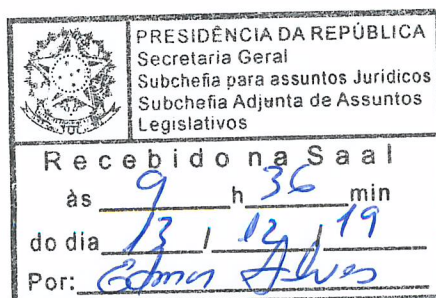 PRESIDÊNCIA DA REPÚBLICA
Secretaria Geral
Subchefia para assuntos Jurídicos
Subchefia Adjunta de Assuntos
Legislativos
Recebido na Saal
às 9 h 36 min
do dia 13 / 12 / 19
Por: Edmar Alves